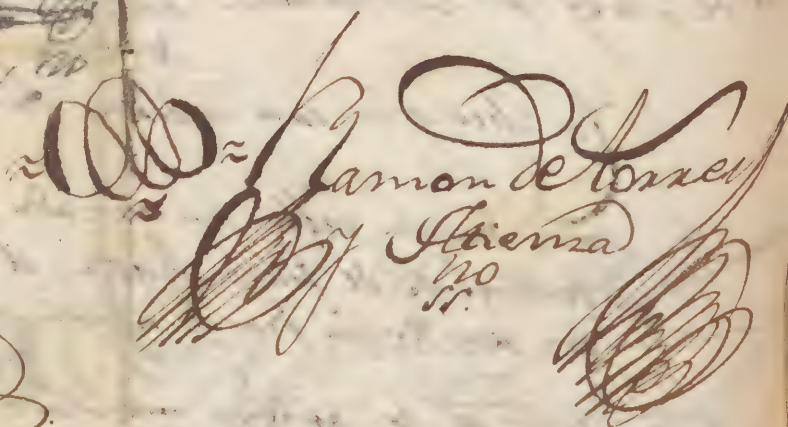 Ramon de torres
y Atienza
no
ss.